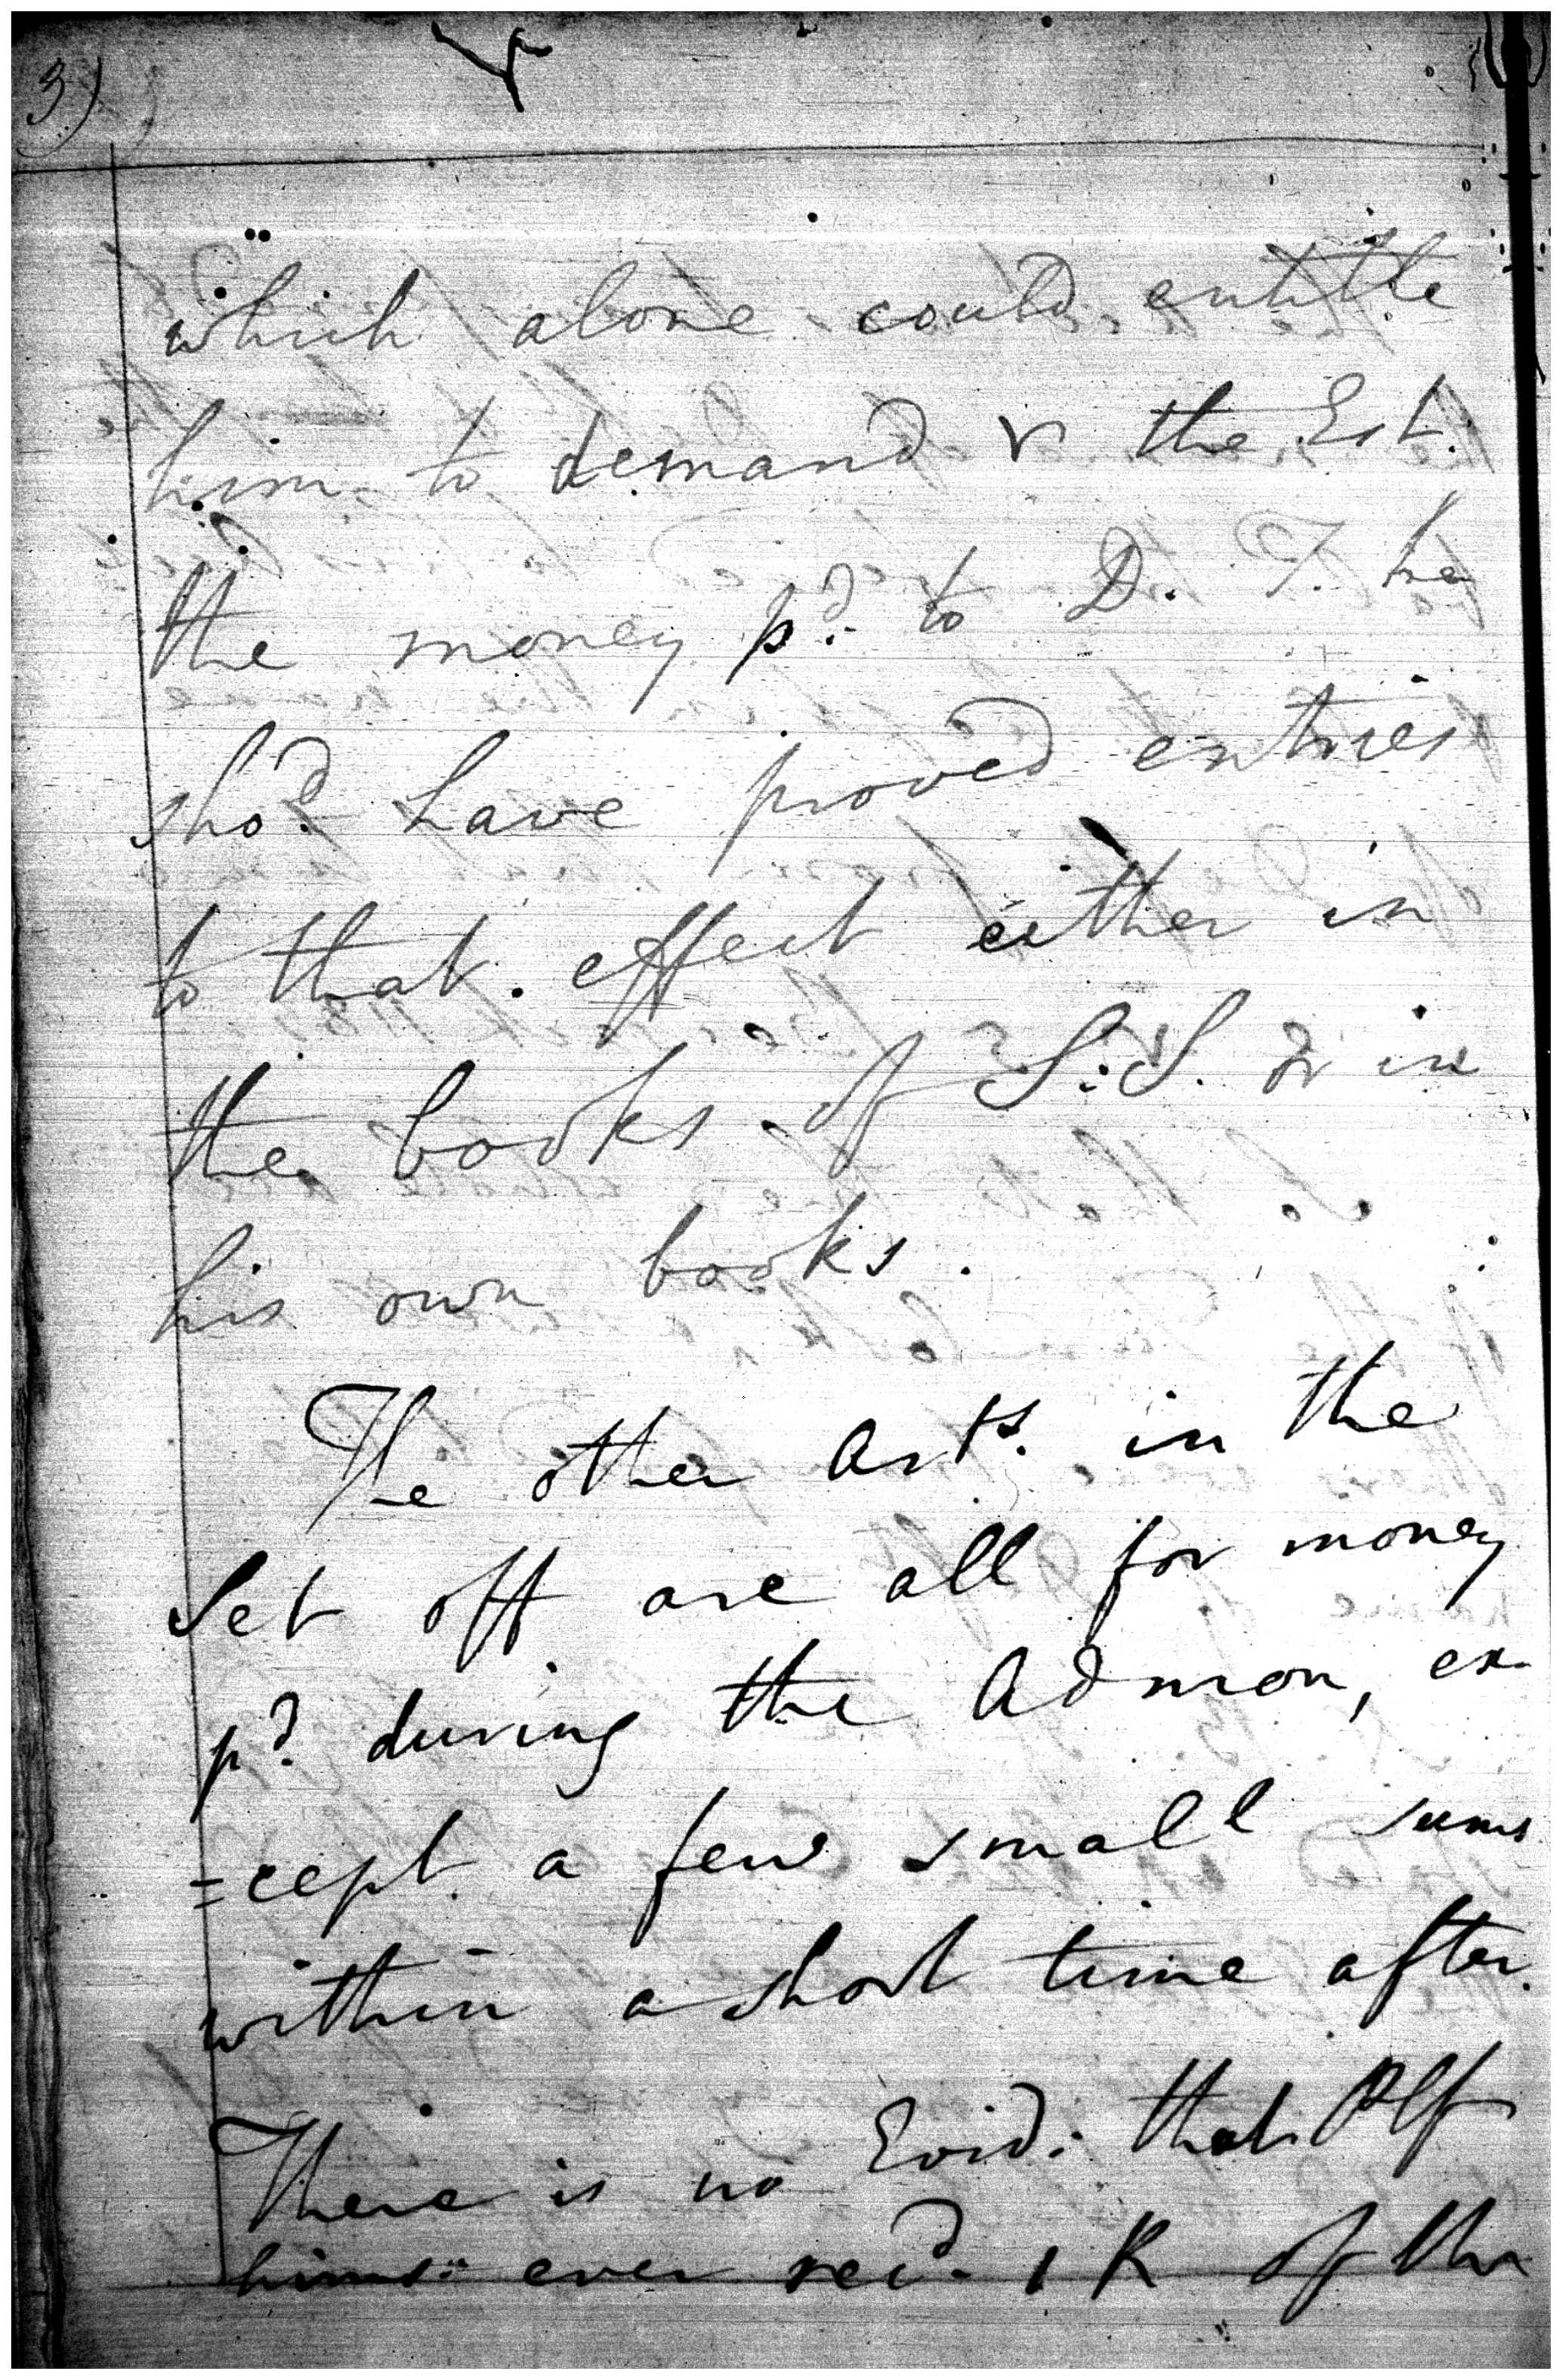 3)
which alone could entitle
him to demand v the Est.
the money pd. to D. T. he
shod. have proved entries
to that effect either in
the books of S. S. or in
his own books.
The other Arts. in the
Set off are all for money
pd. during the Admon, ex
=cept a few small sums
within a short time after.
There is no Evid. that Plf
hims: ever recd. 1 R of the